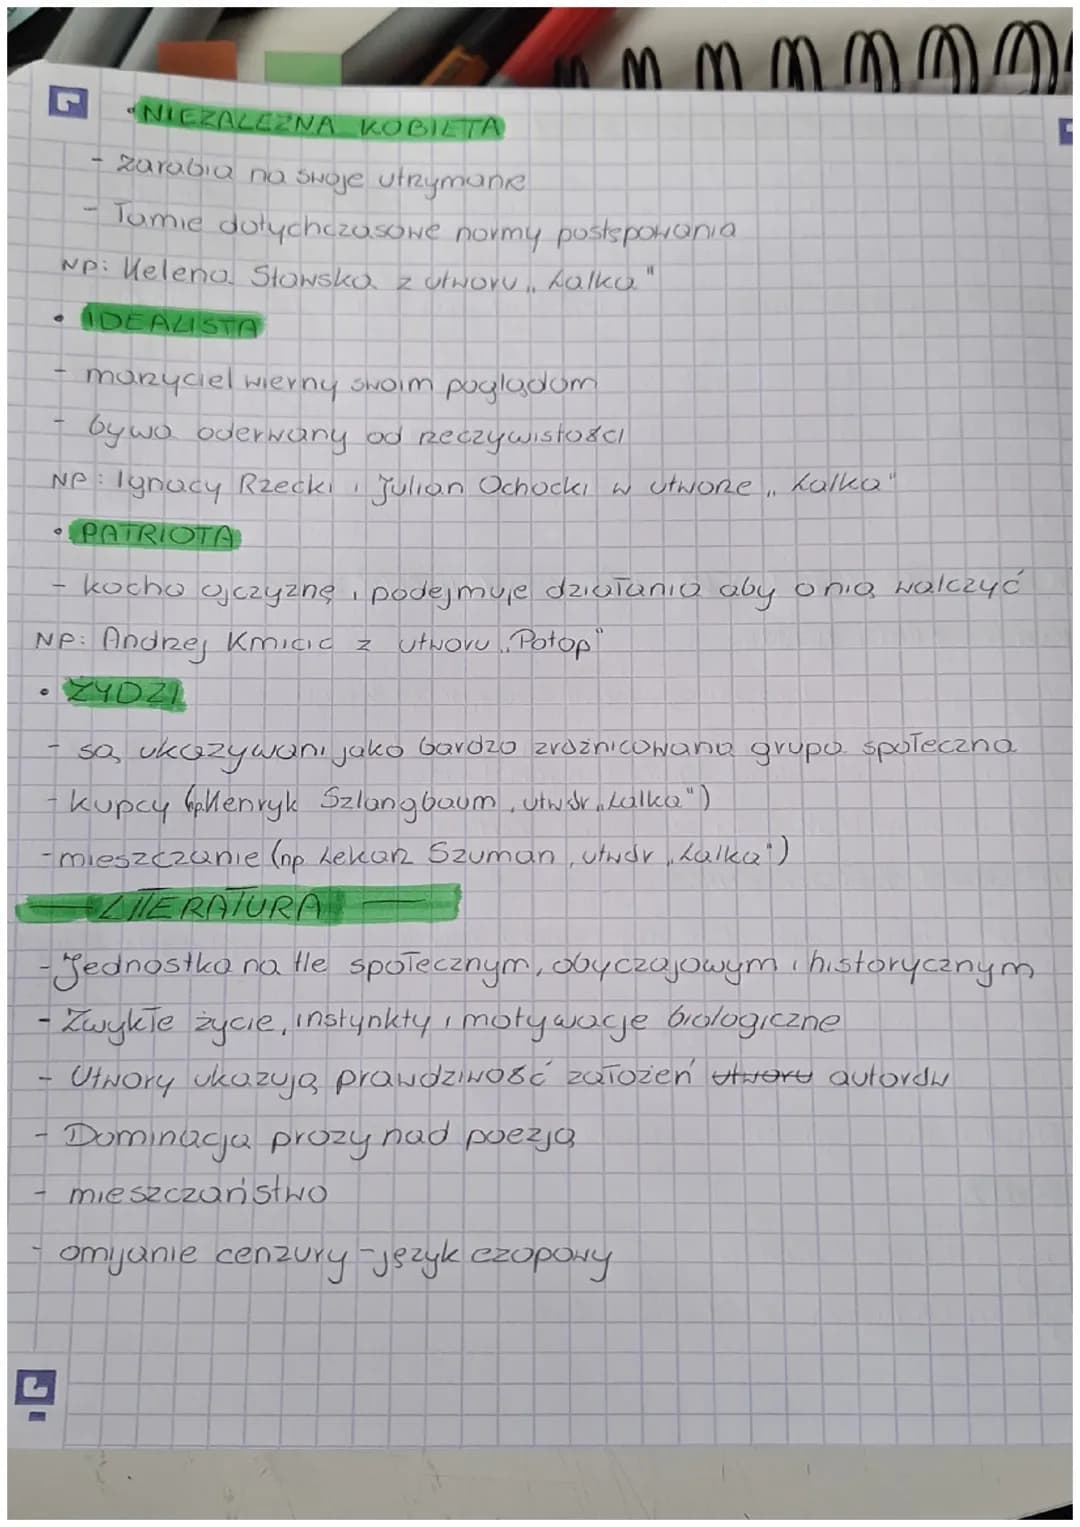 • NIEZALEŻNA KOBIETA
- zarabia na swoje utrzymanie
- Łamie dotychczasowe normy postępowania
NP: Helena Stawska z utworu „Lalka"
• IDEALISTA
- marzyciel wierny swoim poglądom
- bywa oderwany od rzeczywistości
NP: Ignacy Rzecki i Julian Ochocki w utworze „Lalka"
• PATRIOTA
- kocha ojczyznę i podejmuje działania aby o nią walczyć
NP: Andrzej Kmicic z utworu „Potop"
• ŻYDZI
- są ukazywani jako bardzo zróżnicowana grupa społeczna
- kupcy (np Henryk Szlangbaum, utwór „Lalka")
- mieszczanie (np Lekarz Szuman, utwór „Lalka")
— LITERATURA —
- Jednostka na tle społecznym, obyczajowym i historycznym
- Zwykłe życie, instynkty i motywacje biologiczne
- Utwory ukazują prawdziwość założeń utworu autorów
- Dominacja prozy nad poezją
- mieszczaństwo
- omijanie cenzury - język ezopowy